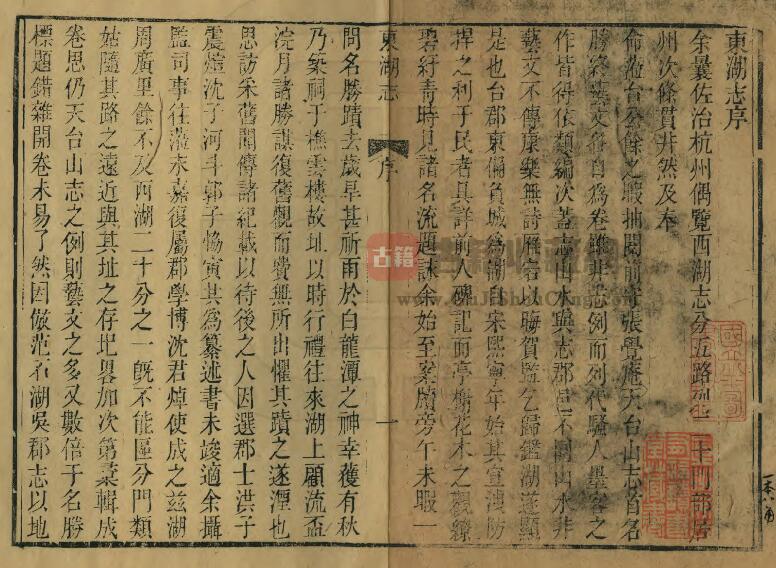 東湖志序
余曩佐治杭州偶覽西湖志分五路列 二十門部居
州次條貫井然及奉
命涖台公餘之暇抽閱前守張覺庵天台山志首名
勝終藝文各自為卷雖非志例而列代騷人墨客之
作皆得依類編次蓋志山水與志郡邑不同山水非
藝文不傳康樂無詩雁宕以晦賀監乞歸鑑湖遂顯
是也台郡東偏負城為湖自宋熙寧年始其宣洩防
捍之利于民者具詳前人碑記而亭榭花木之觀繚
碧紆青時見諸名流題詠余始至案牘旁午未暇一
東湖志 序 一
問名勝蹟去歲旱甚祈雨於白龍潭之神幸獲有秋
乃築祠于樵雲樓故址以時行禮往來湖上顧流盃
浣月諸勝謀復舊觀而費無所出懼其蹟之遂湮也
思訪采舊聞傳諸紀載以待後之人因選郡士洪子
震煊沈子河斗郭子協寅其為纂述書未竣適余攝
監司事往涖永嘉復屬郡學博沈君焯使成之茲湖
周廣里餘不及西湖二十分之一旣不能區分門類
姑隨其路之遠近與其址之存圮畧加次第彚輯成
卷思仍天台山志之例則藝文之多又數倍于名勝
標題錯雜開卷未易了然因倣范石湖吳郡志以地
古籍